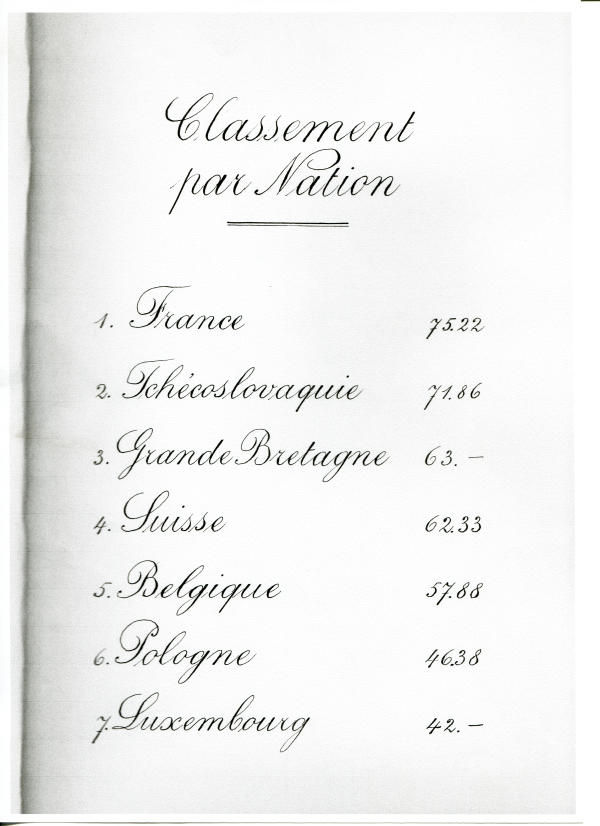 Classement
par Nation
1. France 75.22
2. Tchécoslovaquie 71.86
3. Grande Bretagne 63.—
4. Suisse 62.33
5. Belgique 57.88
6. Pologne 46.38
7. Luxembourg 42.—